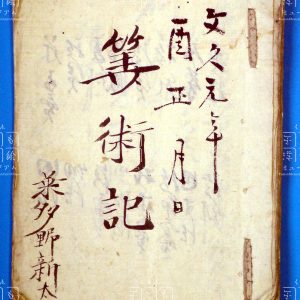 文久元年
酉正月日
筭術記
多野新太